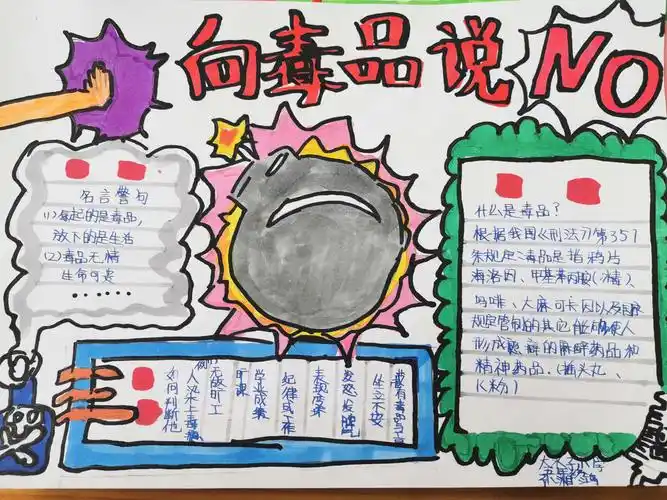 向毒品说NO
名言警句
(1)拿起的是毒品,
放下的是生活
(2)毒品无情
生命可贵
......
什么是毒品?
根据我国《刑法》第357
条规定:毒品是指鸦片
海洛因、甲基苯丙胺(冰毒)、
吗啡、大麻可卡因以及国家
规定管制的其它能够使人
形成瘾癖的麻醉药品和
精神药品。(摇头丸、
K粉)
如何判断他
人染上毒瘾
无故旷工
旷课
学业成绩
纪律或工作
表现变坏
发怒发脾气
坐立不安
藏有毒品与